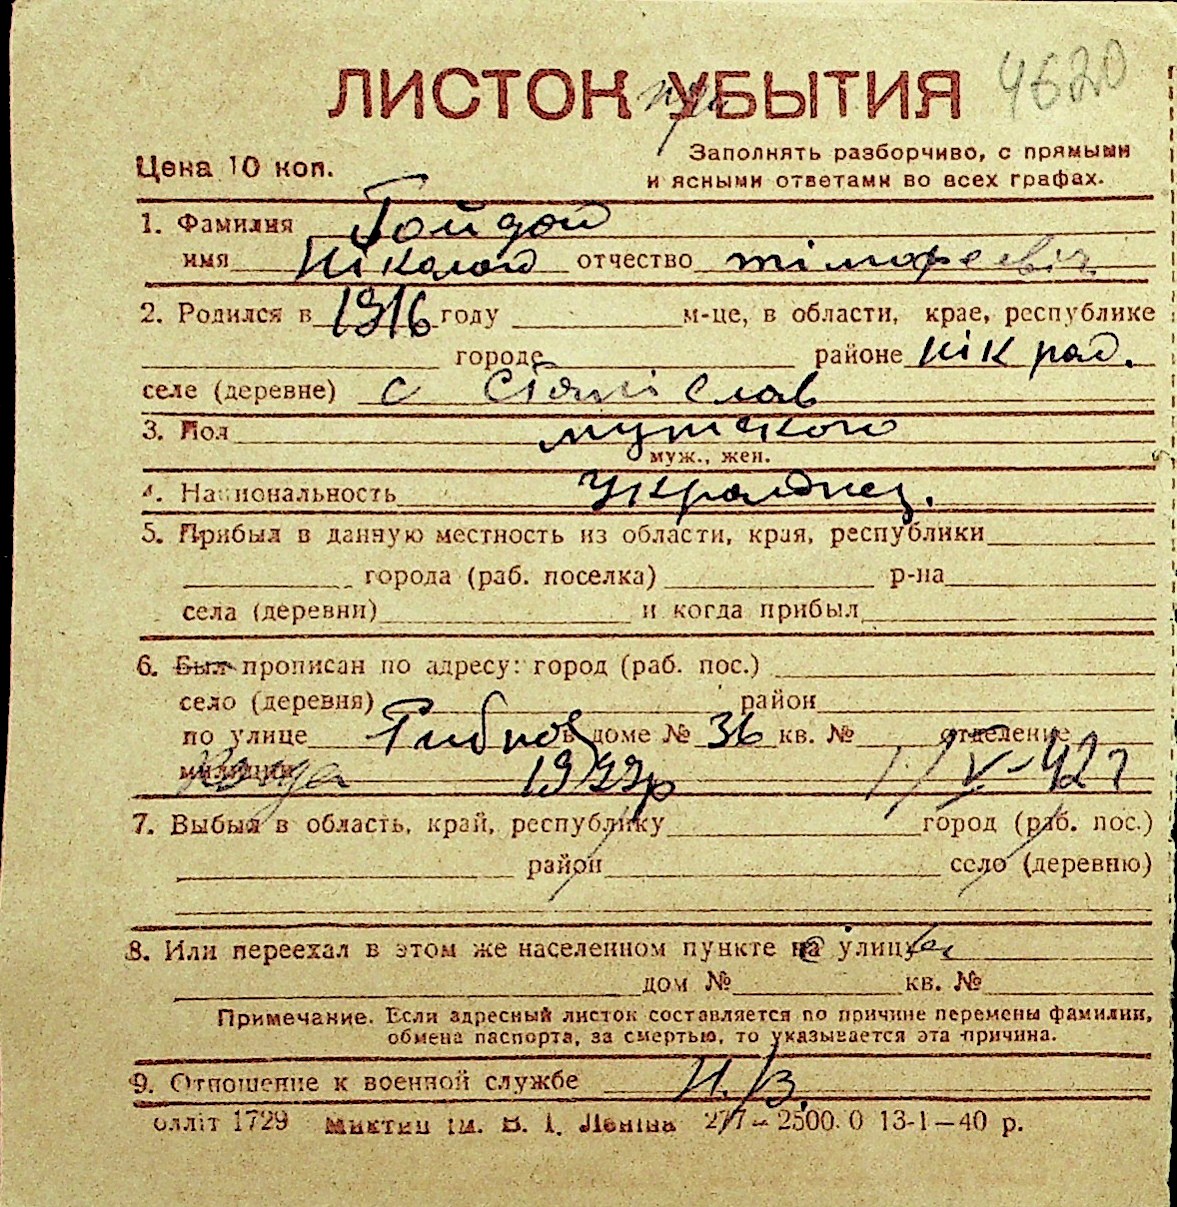 ЛИСТОК при УБЫТИЯ 4620
Цена 10 коп.
Заполнять разборчиво, с прямыми
и ясными ответами во всех графах.
1. Фамилия Гойдой
имя Ніколой отчество тімофеевіч
2. Родился в 1916 году м-це, в области, крае, республике
городе районе Нік рай.
селе (деревне) с Станіслав
3. Пол мужского
муж., жен.
4. Национальность Украинец.
5. Прибыл в данную местность из области, края, республики
города (раб. поселка) р-на
села (деревни) и когда прибыл
6. Был прописан по адресу: город (раб. пос.)
село (деревня) район
по улице Рибноя в доме № 36 кв. № отделение
милиции 1/V-42г
7. Выбыл в область, край, республику город (раб. пос.)
район село (деревню)
8. Или переехал в этом же населенном пункте на улицу
дом № кв. №
Примечание. Если адресный листок составляется по причине перемены фамилии,
обмена паспорта, за смертью, то указывается эта причина.
9. Отношение к военной службе Н/В.
олліт 1729 ім. В. І. Леніна 277 – 2500.0 13-1–40 р.